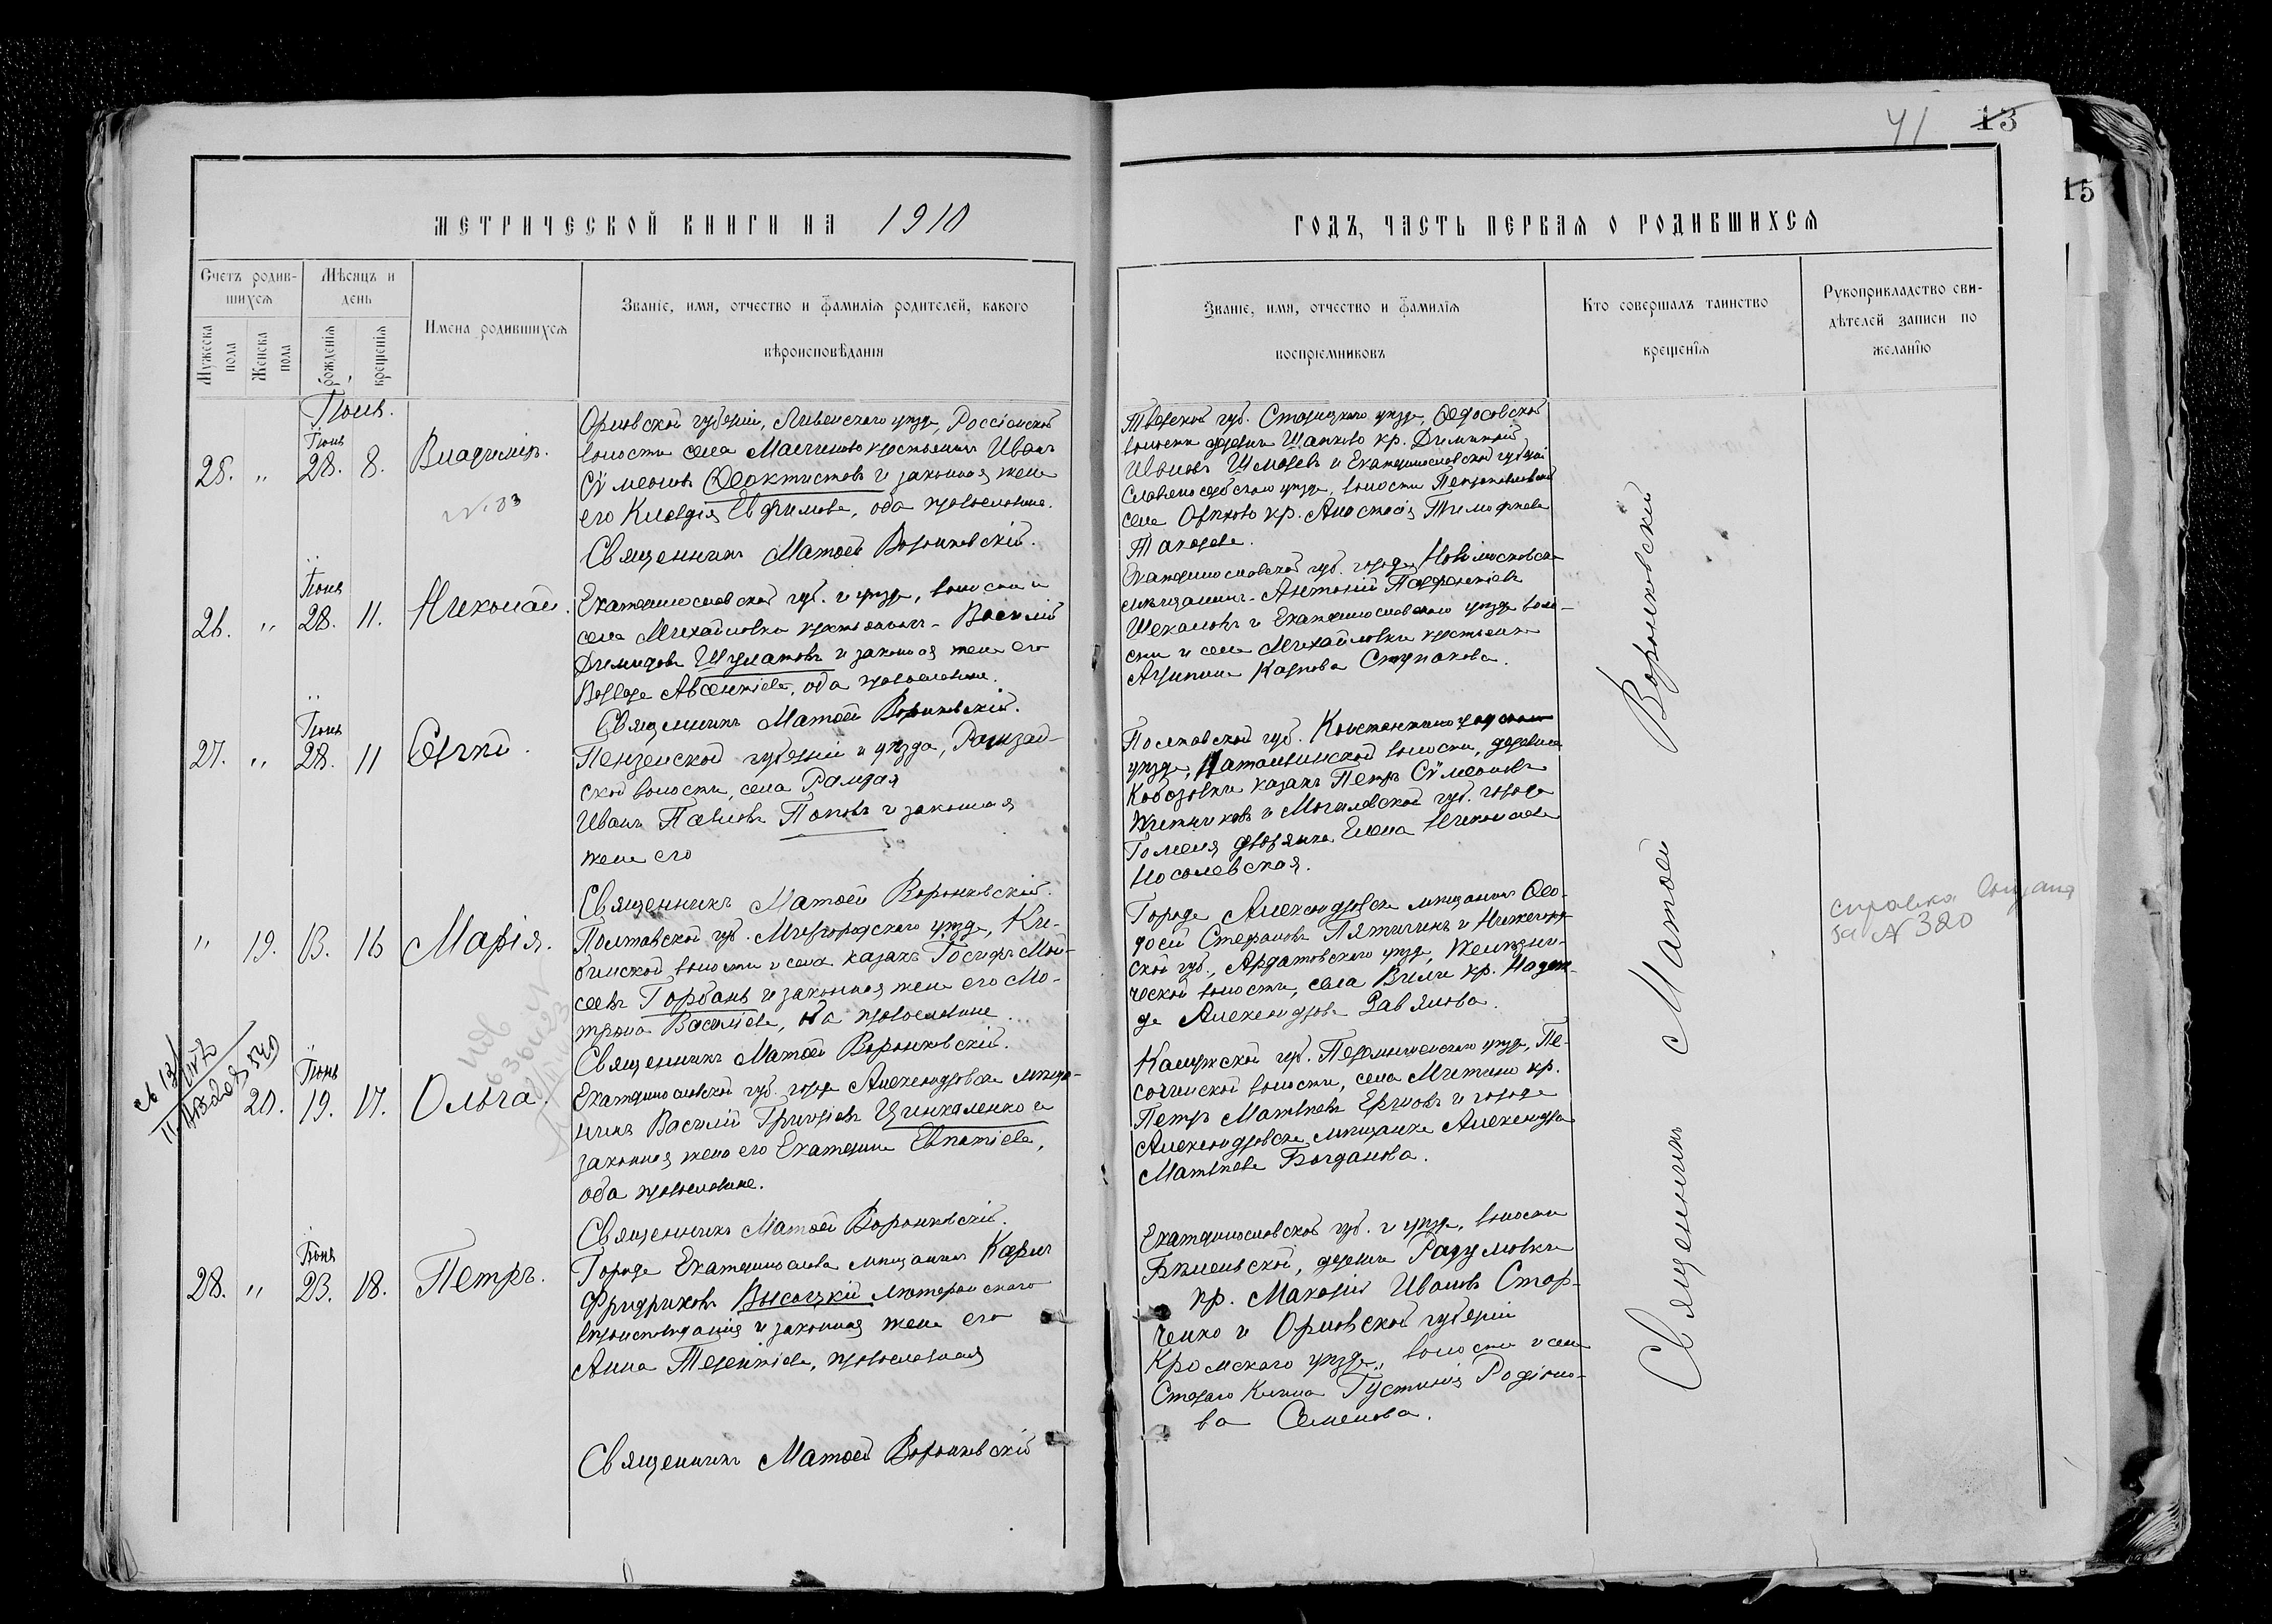 41
13
15
МЕТРИЧЕСКОЙ КНИГИ НА 1910
ГОДЪ, ЧАСТЬ ПЕРВАЯ О РОДИВШИХСЯ
Счетъ родив-
шихся
Мужеска пола
Женска пола
Мѣсяцъ и
день
рожденія
крещенія
Имена родившихся
Званіе, имя, отчество и фамилія родителей, какого
вѣроисповѣданія
Званіе, имя, отчество и фамилія
воспріемниковъ
Кто совершалъ таинство
крещенія
Рукоприкладство сви-
дѣтелей записи по
желанію
25. " 28. 8. Владиміръ.
Орловской губерніи, Ливенскаго уѣзда, Россіонской
волости села крестьянинъ Иванъ
Сѵмеоновъ Ѳеоктистовъ и законная жена
его Клавдія Евфимова, оба православные.
Священникъ Матѳей Воронковскій.
Тверской губ. Старицкаго уѣзда, Ѳедосовской
волости деревни Щапково кр. Димитрій
Ивановъ и Екатеринославской губерніи
Славяносербскаго уѣзда, волости
села кр. Анастасія Тимофѣева
Токарева.
26. " 28. 11. Николай.
Екатеринославской губ. и уѣзда, волости и
села Михайловки крестьянинъ Василій
Демидовъ Шулаковъ и законная жена его
Варвара Авксентіева, оба православные.
Священникъ Матѳей Воронковскій.
Екатеринославской губ. города Новомосковска
мѣщанинъ Антоній
и Екатеринославскаго уѣзда воло-
сти и села Михайловки крестьянка
Карпова Ступакова.
27. " 28. 11 Сергѣй.
Пензенской губерніи и уѣзда, Рамзай-
ской волости, села Рамзая
Иванъ Павловъ Поповъ и законная
жена его
Священникъ Матѳей Воронковскій.
Полтавской губ. Константиноградскаго
уѣзда, волости, деревни
казакъ Петръ Сѵмеоновъ
Житниковъ и Могилевской губ. города
Гомеля дворянка Елена Николаева
Носолевская.
" 19. 13. 16 Марія.
Полтавской губ. Миргородскаго уѣзда, Ки-
бинской волости и села казакъ Іосифъ Мой-
сеевъ Горбань и законная жена его Ма-
трона Василіева, оба православные.
Священникъ Матѳей Воронковскій.
Города Александровска мѣщанинъ Ѳео-
досій Стефановъ Пятигинъ и Нижегород-
ской губ., Ардатовскаго уѣзда,
ческой волости, села Вили кр. Надеж-
да Александрова Завялова.
справка
за № 320
20. Іюнь 19. 17. Ольга.
Екатеринославской губ. города Александровска мѣща-
нинъ Василій Григоріевъ Цинкаленко и
законная жена его Екатерина Евпатіева,
оба православные.
Священникъ Матѳей Воронковскій.
Калужской губ. Перемышльскаго уѣзда,
волости, села Митино кр.
Петръ Матвѣевъ Ершовъ и города
Александровска мѣщанка Александра
Матвѣева Богданова.
28. " Іюнь 23. 18. Петръ.
Города Екатеринослава мѣщанинъ Карлъ
Фридриховъ Высоцкій лютеранскаго
вѣроисповѣданія и законная жена его
Анна Терентіева, православная
Священникъ Матѳей Воронковскій
Екатеринославской губ. и уѣзда, волости
деревни
кр. Макарій Ивановъ Стар-
ченко и Орловской губерніи
Кромскаго уѣзда, волости и села
Іустинія Родіоно-
ва Семенова.
Священникъ Матѳей Воронковскій